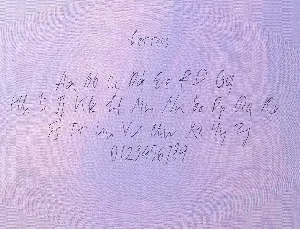 Aa Bb Cc Dd Ee Ff Gg
Hh Ii Jj Kk Ll Mm Nn Oo Pp Qq Rr
Ss Tt Uu Vv Ww Xx Yy Zz
0123456789